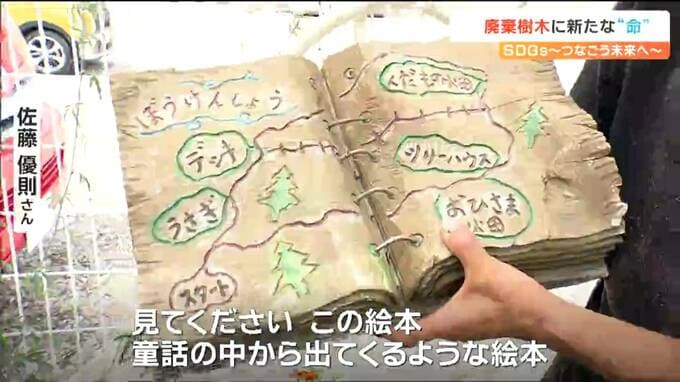 廃棄樹木に新たな“命”
SDGs～つなごう未来へ～
佐藤 優則さん
ぼうけんしょう
デッキ
うさぎ
スタート
くだもの公園
ツリーハウス
おひさま
公園
見てください この絵本
童話の中から出てくるような絵本